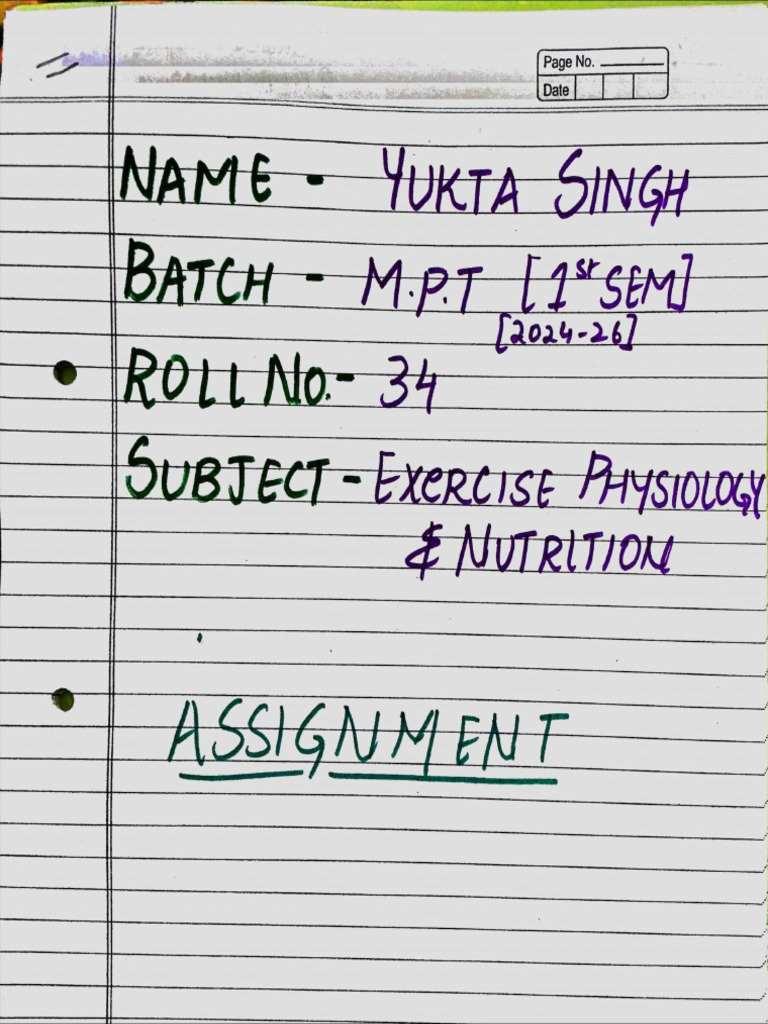 Page No.
Date
NAME - YUKTA SINGH
BATCH - M.P.T [1st SEM]
[2024-26]
ROLL No. - 34
SUBJECT - EXERCISE PHYSIOLOGY
& NUTRITION
ASSIGNMENT